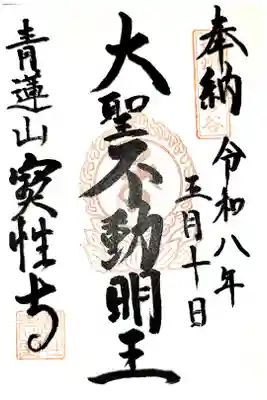 奉納
令和八年
三月十日
大聖不動明王
青蓮山
實性寺